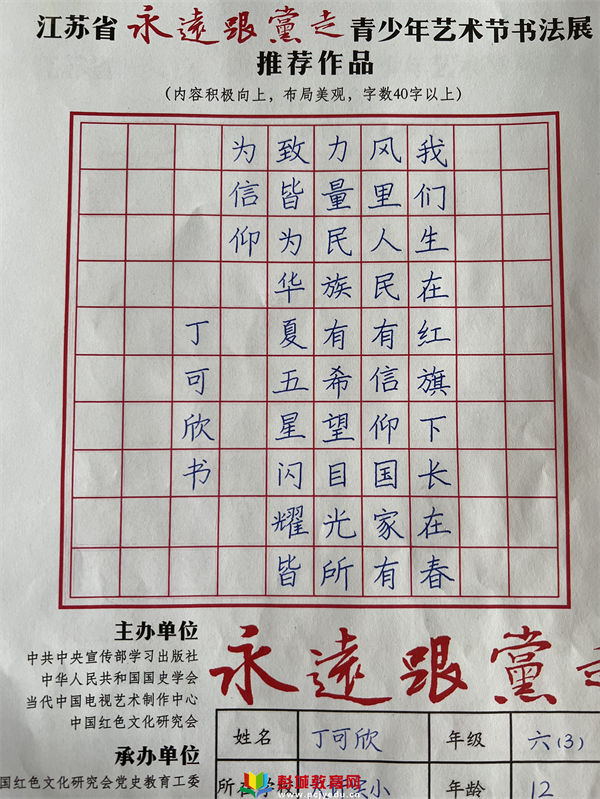 江苏省永遠跟黨走青少年艺术节书法展
推荐作品
(内容积极向上，布局美观，字数40字以上)
我们生在红旗下长在春
风里人民有信仰国家有
力量民族有希望目光所
致皆为华夏五星闪耀皆
为信仰
丁可欣书
主办单位
中共中央宣传部学习出版社
中华人民共和国国史学会
当代中国电视艺术制作中心
中国红色文化研究会
承办单位
国红色文化研究会党史教育工委
永遠跟黨走
姓名 丁可欣 年级 六(3)
所在学校 小 年龄 12
教育网